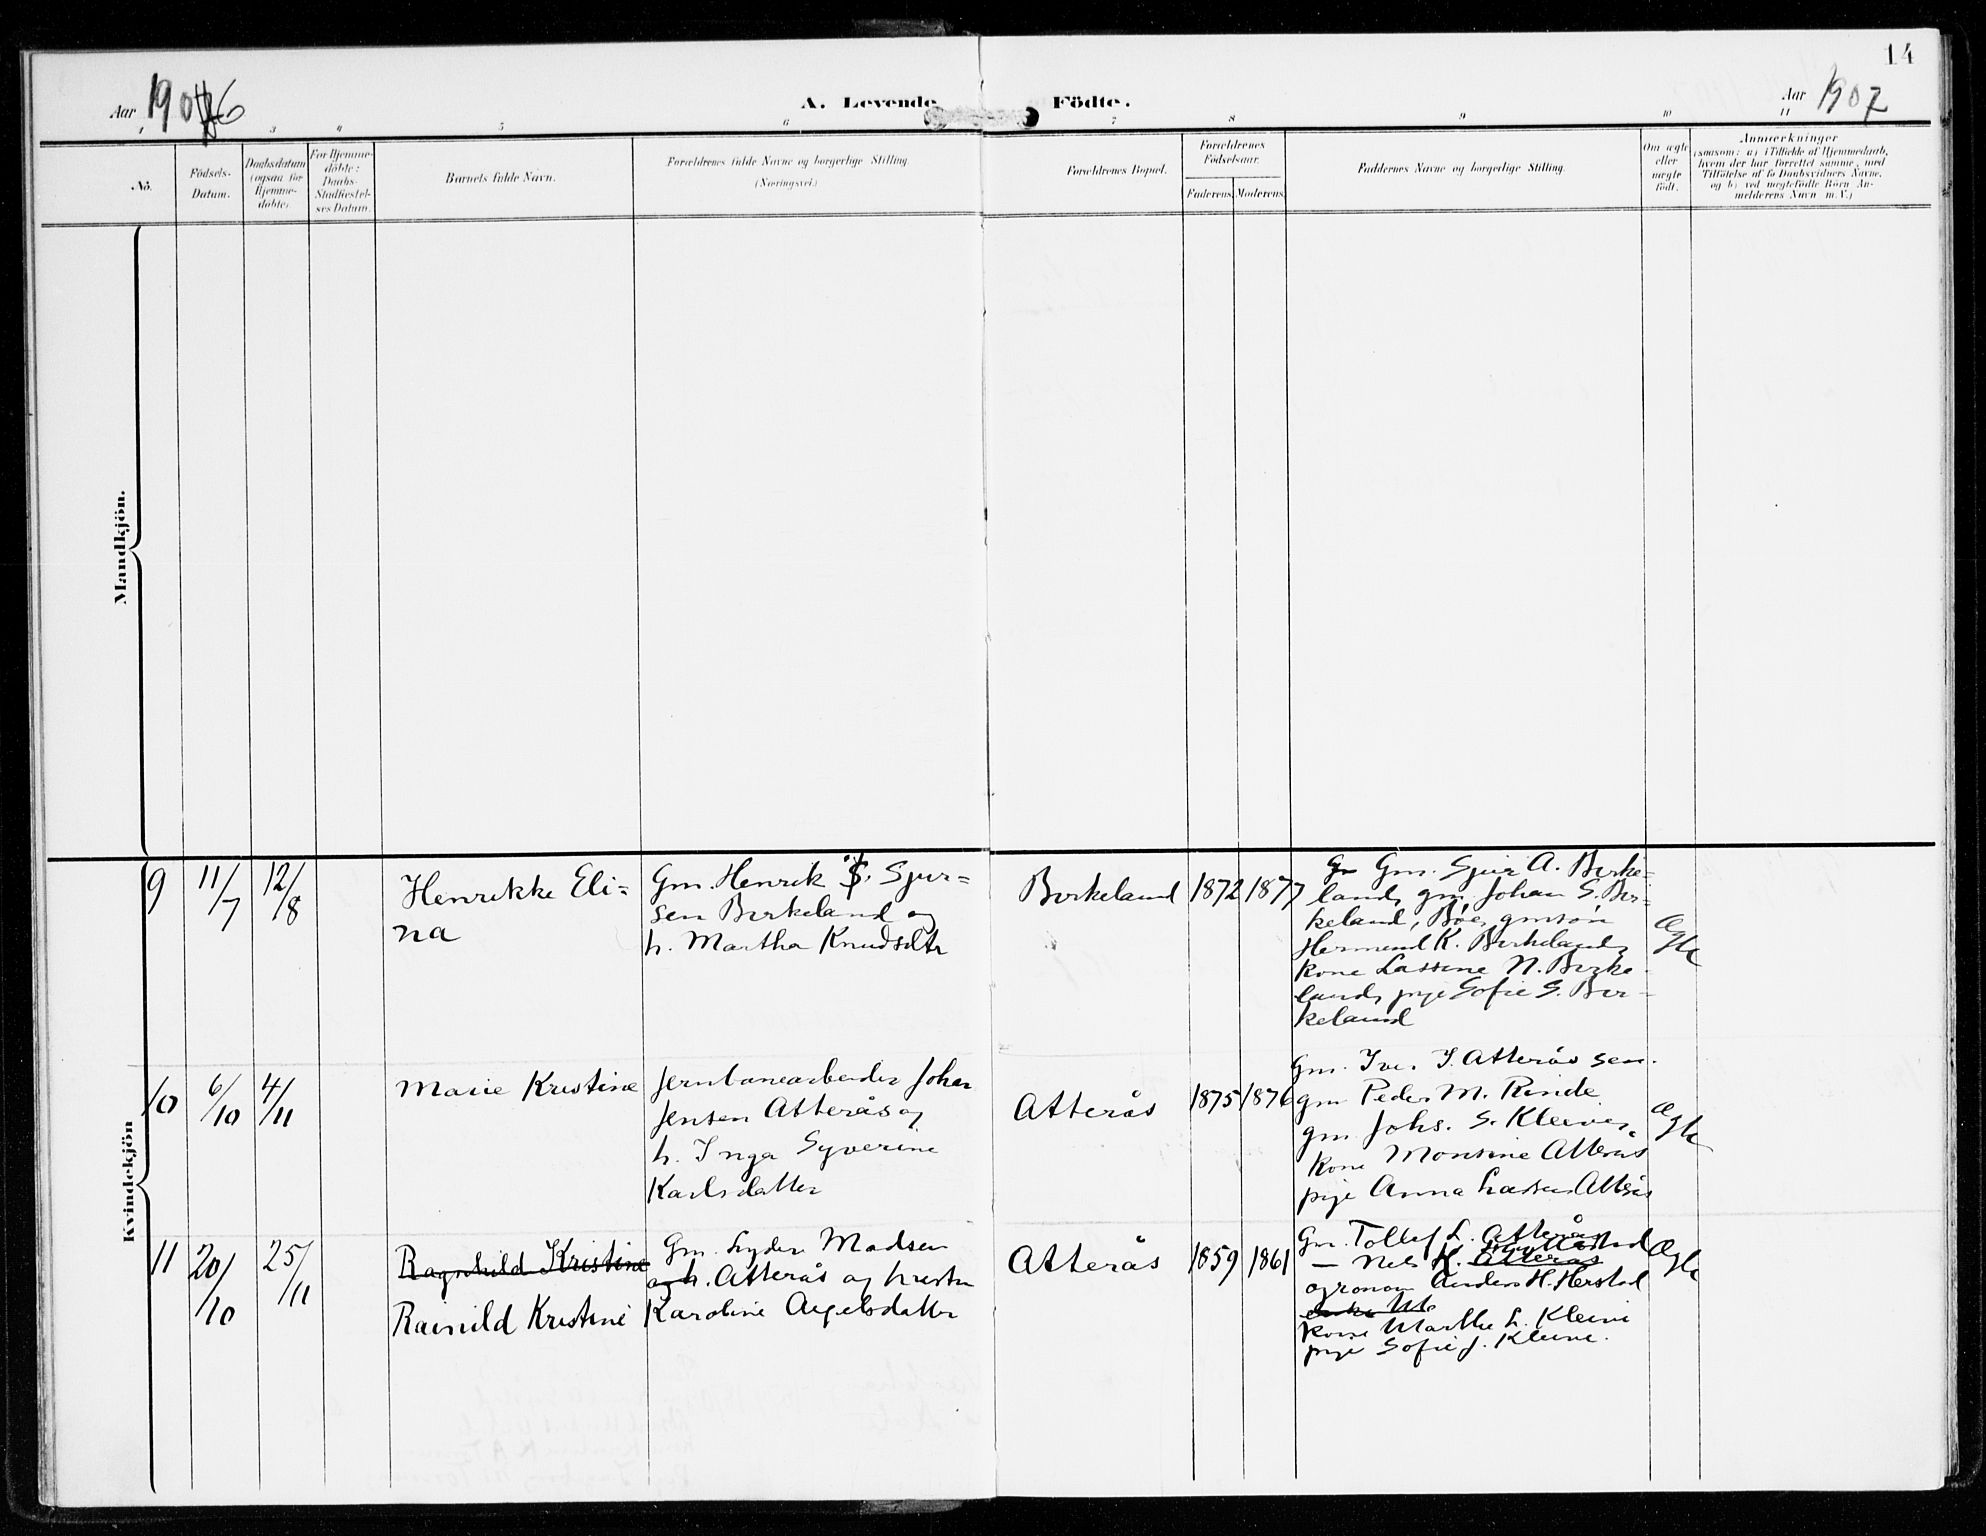 14
Aar 1906
A. Levende Födte.
Aar 1907
1 3 4 5 6 7 8 9 10 11
No.
Födsels-Datum.
Daabsdatum (ogsaa for Hjemme-döbte).
For Hjemme-döbte: Daabs-Stadfæstel-ses Datum.
Barnets fulde Navn.
Forældrenes fulde Navne og borgerlige Stilling.
(Næringsvei.)
Forældrenes Bopæl.
Forældrenes Födselsaar.
Faderens. Moderens.
Faddernes Navne og borgerlige Stilling.
Om ægte eller uægte födt.
Anmærkninger
(saasom: a) i Tilfælde af Hjemmedaab,
hvem der har forrettet samme, med
Tilföielse af to Daabsvidners Navne,
og b) ved uægtefödte Börn An-
melderens Navn m. V.)
Mandkjön.
Kvindekjön
9 11/7 12/8
Henrikke Eli=
na
Gm. Henrik S. Sjur=
sen Birkeland og
h. Martha Knudsdtr
Birkeland 1872 1877
Gm. Sjur A. Birke-
land, gm. Johan S. Bir-
keland, Böe, gmsön
Hermund K. Birkeland,
kone Lassine N. Birke-
land, pige Sofie S. Bir-
keland
Ægte
10 6/10 4/11
Marie Kristine
Jernbanearbeider Johan
Jensen Atterås og
h. Inga Syverine
Karlsdatter
Atterås 1875 1876
Gm. Iver I. Atterås sen.
gm Peder M. Rinde
gm Johs. S. Kleive,
kone Monsine Atterås
pige Anna Larsen Atterås
Ægte
11 20/10 25/11
Ragnhild Kristine
Rainild Kristine
Gm. Lyder Madsen
og h. Atterås og hustru
Karoline Aegelsdatter
Atterås 1859 1861
Gm. Tollef L. Atterås
— Nels K. Atterås
agronom Anders H. Herstad
enke M
kone Marthe L. Kleive
pige Sofie J. Kleive.
Ægte